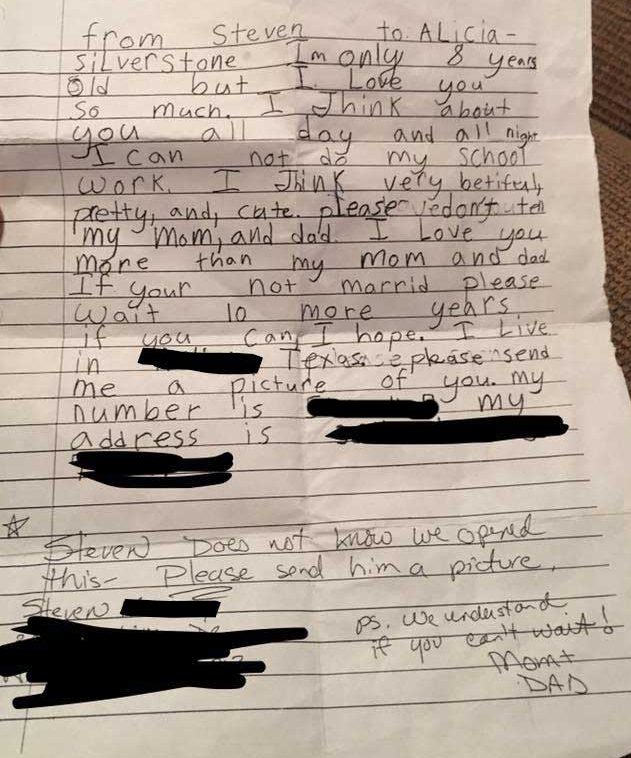 from Steven to ALicia-
silverstone Im only 8 years
old but I Love you
so much. I Think about
you all day and all night
I can not do my school
work. I Think very betiful,
pretty, and, cute. please don't
my mom, and dad. I Love you
more than my mom and dad
If your not marrid please
wait 10 more years
if you can, I hope. I Live
in Texas. please send
me a picture of you. my
number is my
address is
☆
Steven Does not know we opened
this- Please send him a picture.
Steven
ps. we understand
if you can't wait!
Mom +
DAD